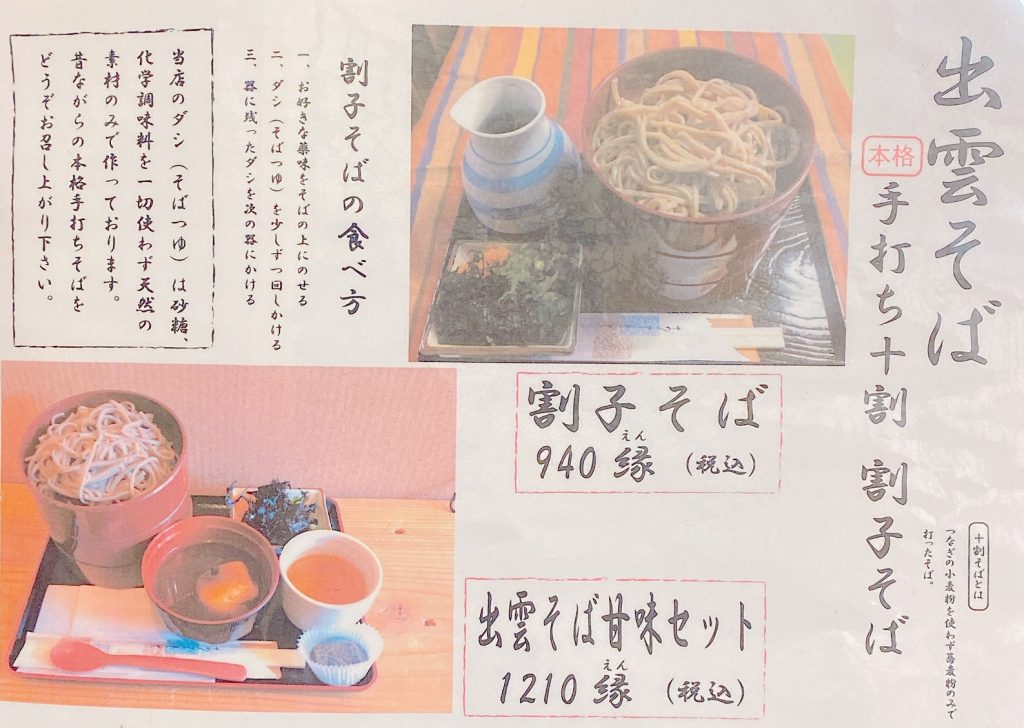 出雲そば
本格
手打ち十割 割子そば
十割そばとは
つなぎの小麦粉を使わず蕎麦粉のみで
打ったそば。
割子そば
940縁（税込）
えん
出雲そば甘味セット
1210縁（税込）
えん
割子そばの食べ方
一、お好きな薬味をそばの上にのせる
二、ダシ（そばつゆ）を少しずつ回しかける
三、器に残ったダシを次の器にかける
当店のダシ（そばつゆ）は砂糖、
化学調味料を一切使わず天然の
素材のみで作っております。
昔ながらの本格手打ちそばを
どうぞお召し上がり下さい。